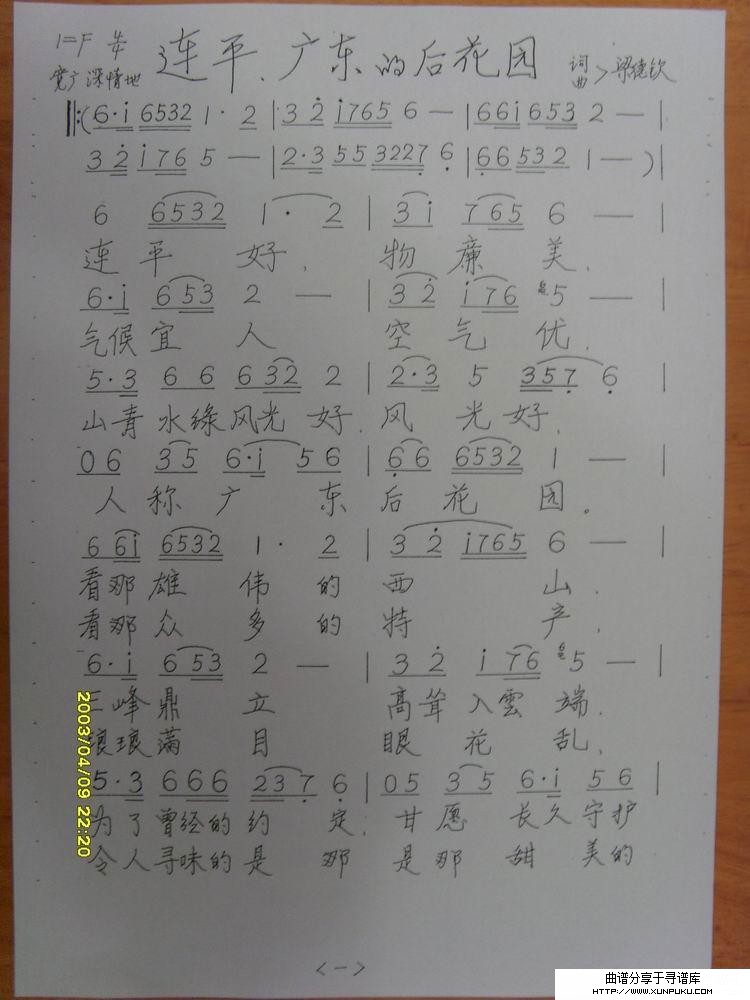 1=F 4/4 连平、广东的后花园 词曲>梁德钦
宽广深情地
‖:(6·i 6532 1· 2 | 3 2 i765 6 — | 66i 653 2 — |
3 2 i 76 5 — | 2·3 55 3227 6 | 66532 1 — ) |
6 6532 1· 2 | 3 i 765 6 — |
连平好、物廉美、
6·i 653 2 — | 3 2 i76 5 — |
气候宜人 空气优、
5·3 6 6 6 32 2 | 2·3 5 357 6 |
山青水绿风光好、风光好、
06 35 6·i 56 | 66 6532 1 — |
人称广东后花园。
6 6i 6532 1· 2 | 3 2 i765 6 — |
看那雄伟的西山、
看那众多的特产、
6·i 653 2 — | 3 2 i 76 5 — |
三峰鼎立 高耸入雲端、
琅琅满目 眼花乱、
5·3 666 237 6 | 05 35 6·i 56 |
为了曾经的约定、甘愿长久守护
令人寻味的是那 是那甜美的
<一>
2003/04/09 22:20
曲谱分享于寻谱库
HTTP://WWW.XUNPUKU.COM